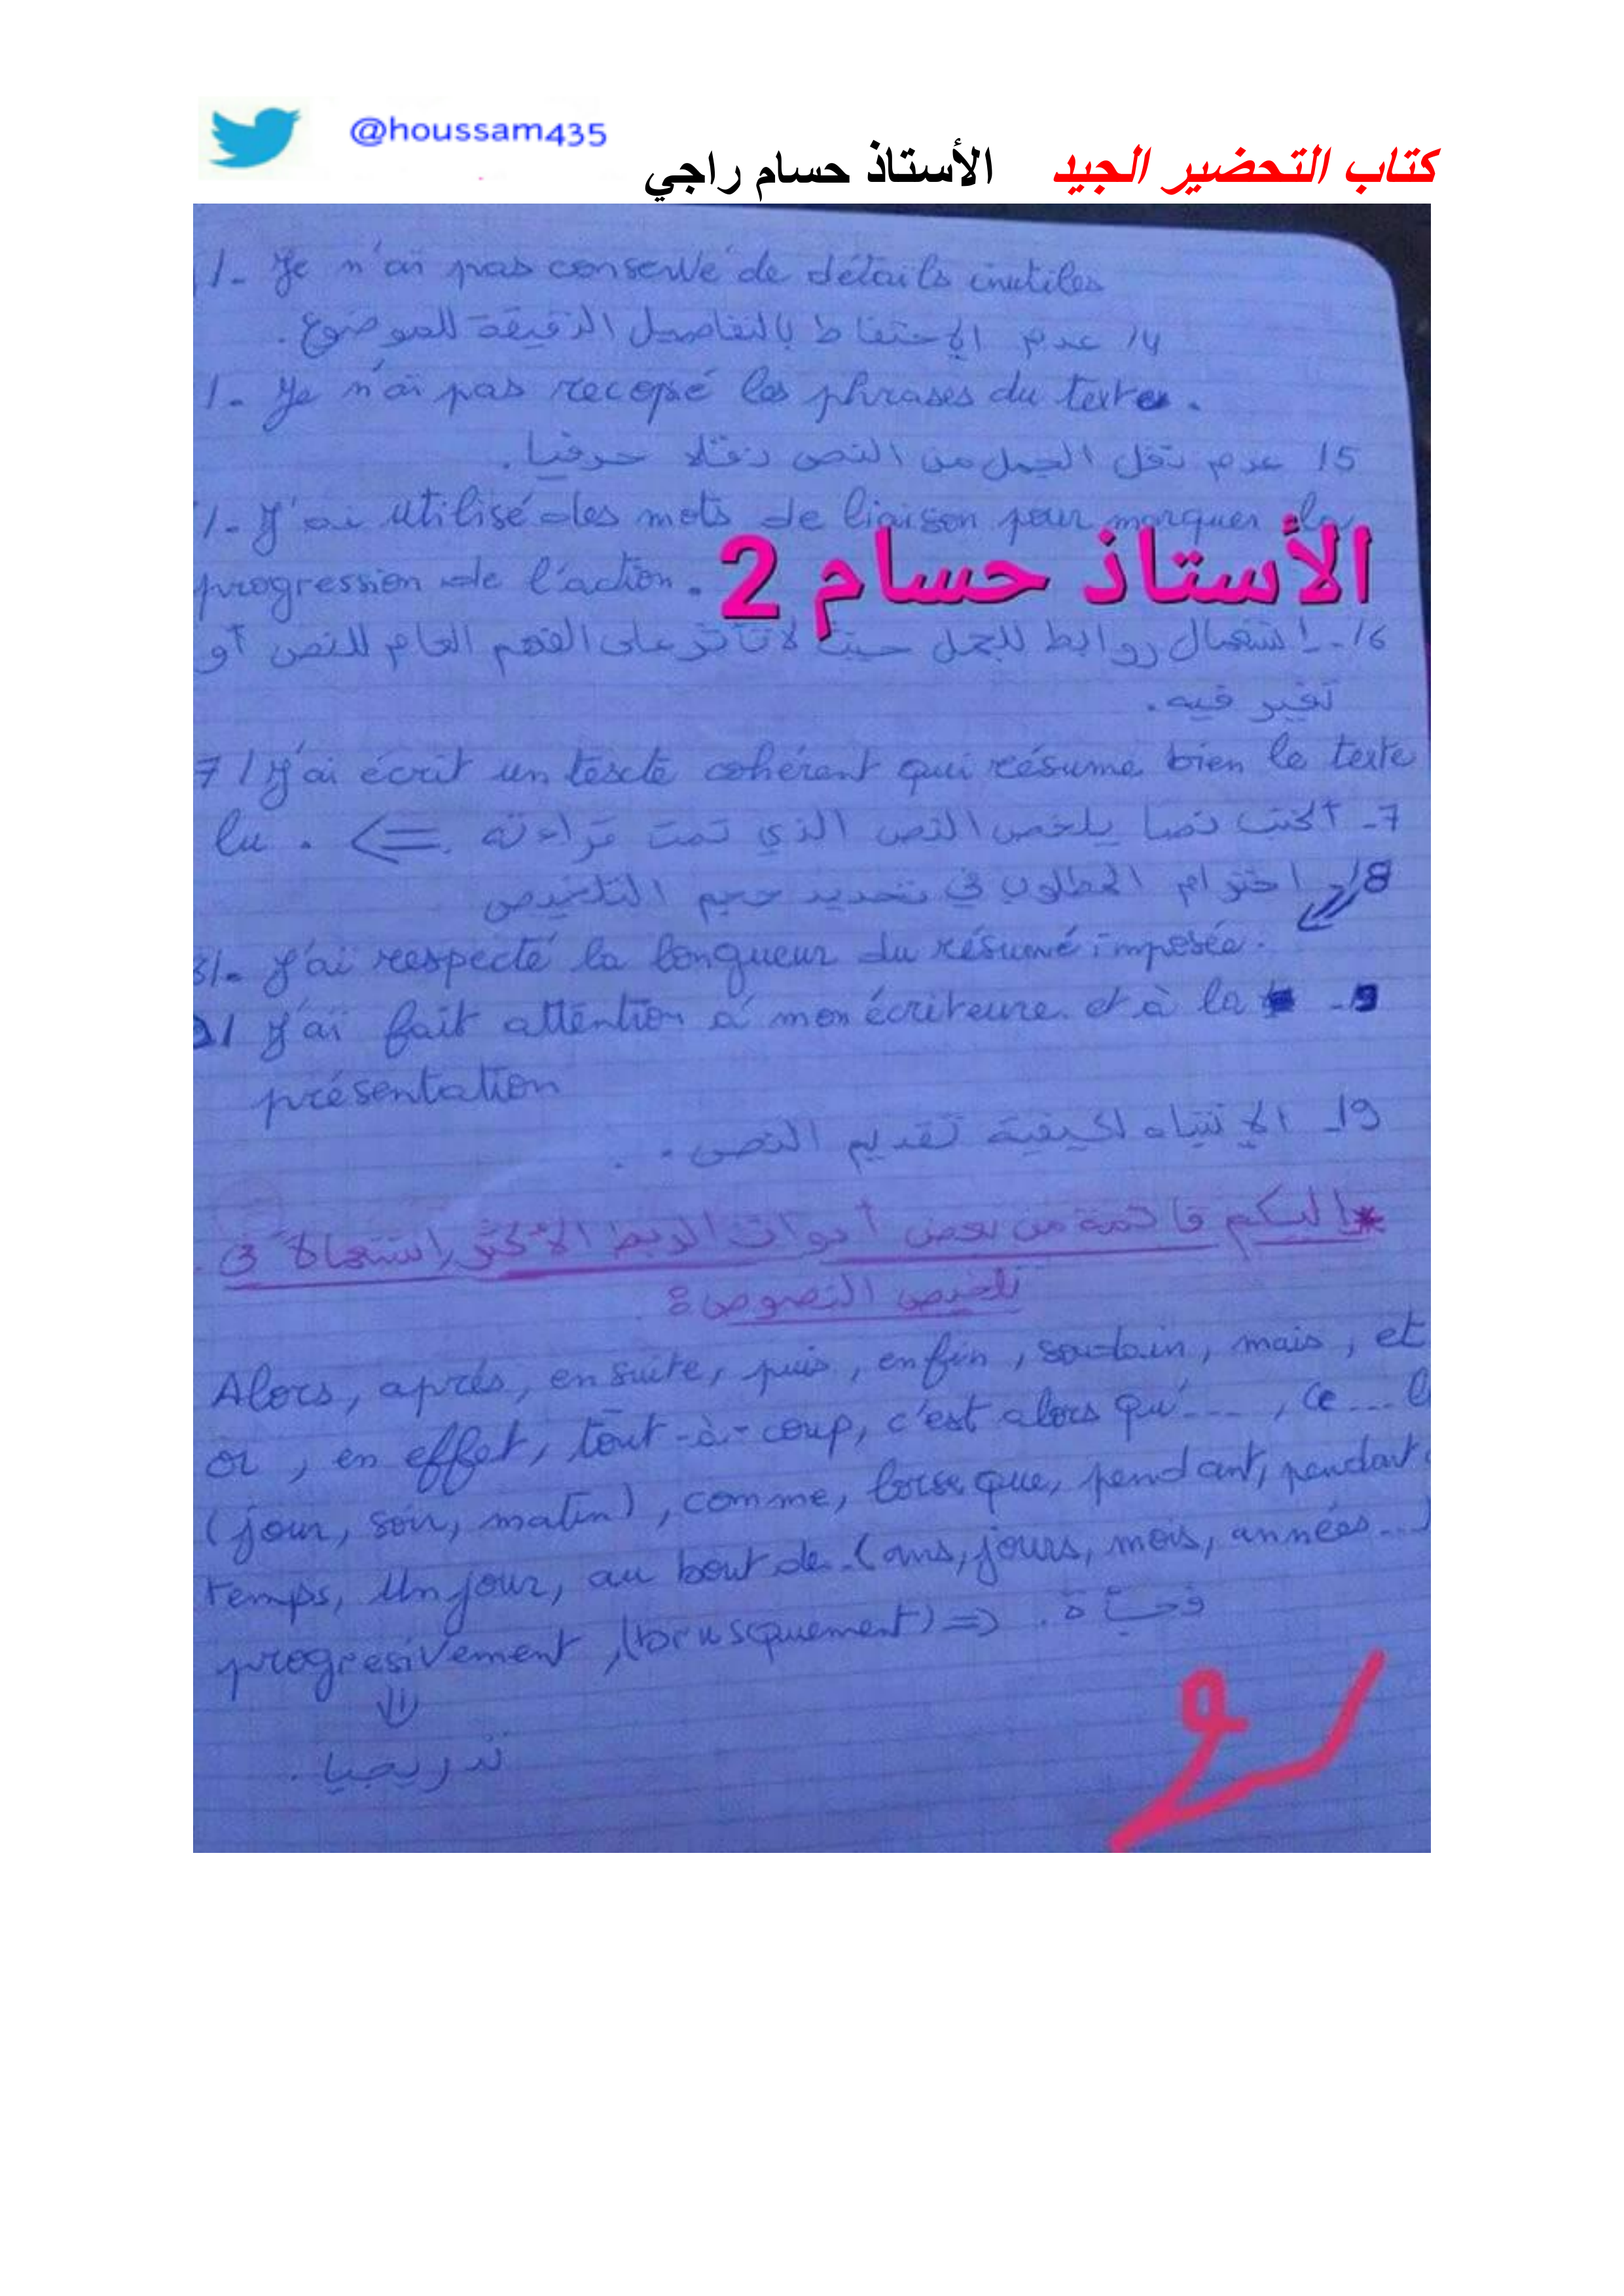 @houssam435
كتاب التحضير الجيد الأستاذ حسام راجي
/- Je n'ai pas conservé de détails inutiles
/4 عدم الإحتفاظ بالتفاصيل الدقيقة للموضوع.
/- Je n'ai pas recopié les phrases du texte.
/5 عدم نقل الجمل من النص نقلا حرفيا.
/- J'ai utilisé des mots de liaison pour marquer la
progression de l'action.
الأستاذ حسام 2
/6- إستعمال روابط للجمل حيث لا تأثر على الفهم العام للنص أو
تغير فيه.
7/ J'ai écrit un texte cohérent qui résume bien le texte
7- أكتب نصا يلخص النص الذي تمت قراءته <= . lu
/8 احترام المطلوب في تحديد حجم التلخيص
8/- J'ai respecté la longueur du résumé imposée.
9/ J'ai fait attention à mon écriteure et à la - 9
présentation
/9- الإنتباه لكيفية تقديم النص.
*إليكم قائمة من بعض أدوات الربط الأكثر إستعمالا في
تلخيص النصوص:
Alors, après, ensuite, puis, enfin, soudain, mais, et
or, en effet, tout-à-coup, c'est alors qu'...., ce....
(jour, soir, matin), comme, lorseque, pendant, pendant
temps, Un jour, au bout de (ans, jours, mois, années...)
progresivement, (brusquement) => فجأة.
تدريجيا.